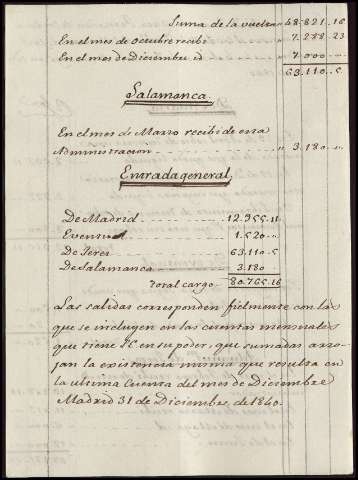 Suma de la vuelta 48.821..16
En el mes de octubre recibi " 7.288..23
En el mes de Diciembre id " 7.000 "
63.110..5
Salamanca.
En el mes de Marzo recibi de esta
Administracion " 3.180 "
Entrada general
De Madrid 12.955..11
Eventual 1.520 "
De Jerez 63.110..5
De Salamanca 3.180
Total cargo 80.765..16
Las salidas corresponden fielmente con las
que se incluyen en las cuentas mensuales
que tiene en su poder, que sumadas arro-
jan la existencia misma que resulta en
la ultima Cuenta del mes de Diciembre
Madrid 31 de Diciembre, de 1840.